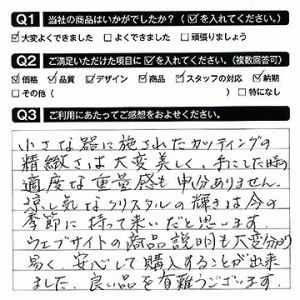 Q1 当社の商品はいかがでしたか？（☑を入れてください。）
☑大変よくできました □よくできました □頑張りましょう
Q2 ご満足いただけた項目に☑を入れてください。（複数回答可）
☑価格 ☑品質 ☑デザイン ☑商品 ☑スタッフの対応 ☑納期
□その他（ ） □特になし
Q3 ご利用にあたってご感想をおよせください。
小さな器に施されたカッティングの
精緻さは大変美しく、手にした時の
適度な重量感も申分ありません。
涼し気なクリスタルの輝きは今の
季節に持って来いだと思います。
ウェブサイトの商品説明も大変分かり
易く、安心して購入することが出来
ました。良い品を有難うございます。